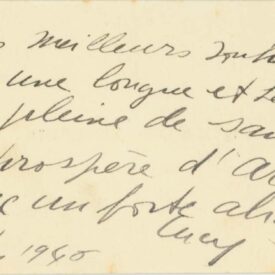 meilleurs souh
une longue et
pleine de san
prospère d'a
un forte
Lucy
1940